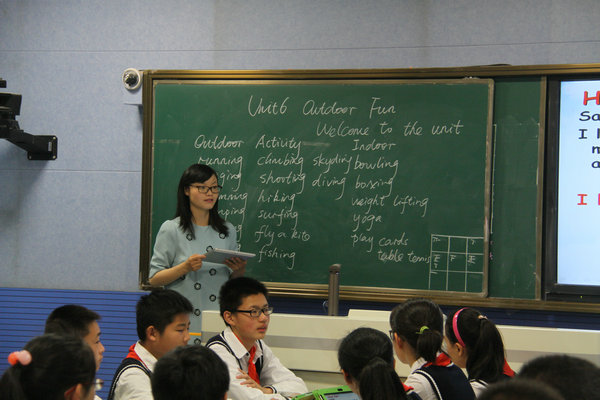 Unit6 Outdoor Fun
Welcome to the unit
Outdoor Activity Indoor
running climbing skyding bowling
shooting diving boxing
hiking weight lifting
surfing yoga
fly a kite play cards
fishing table tennis
H
Sa
I
I